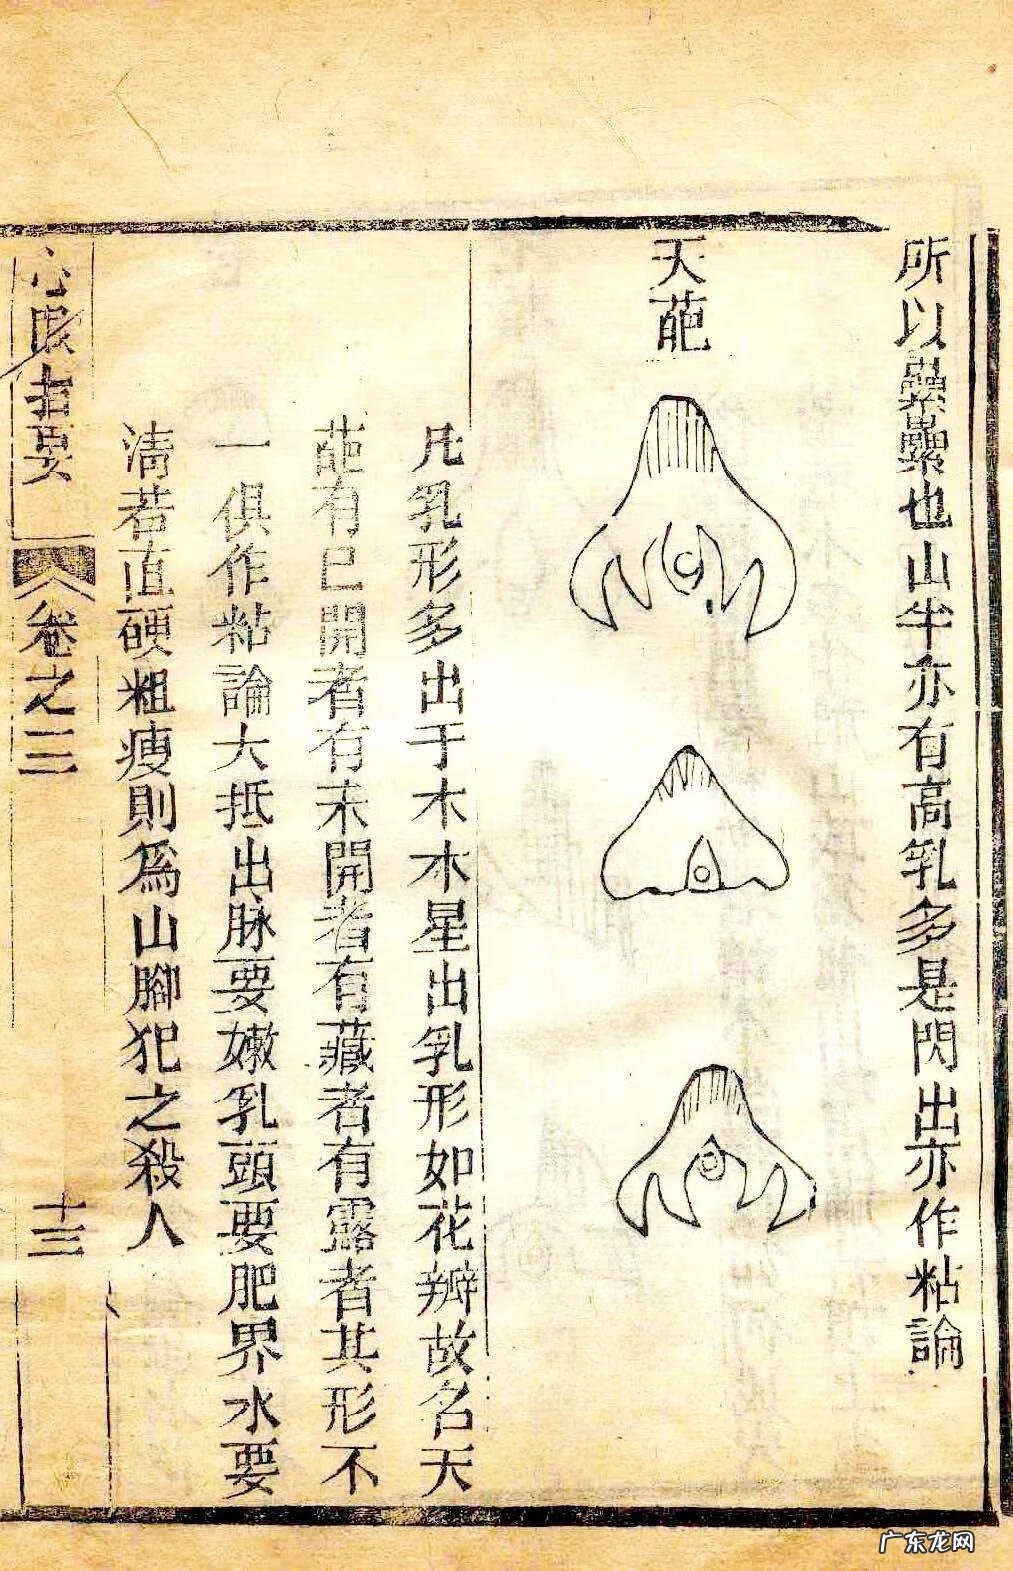 所以纍纍也山半亦有高乳多是閃出亦作粘論
天葩
凡乳形多出于木木星出乳形如花瓣故名天
葩有已開者有未開者有藏者有露者其形不
一俱作粘論大抵出脉要嫩乳頭要肥界水要
清若直硬粗瘦則為山腳犯之殺人
心眼指要
卷之三
十三
广东龙网